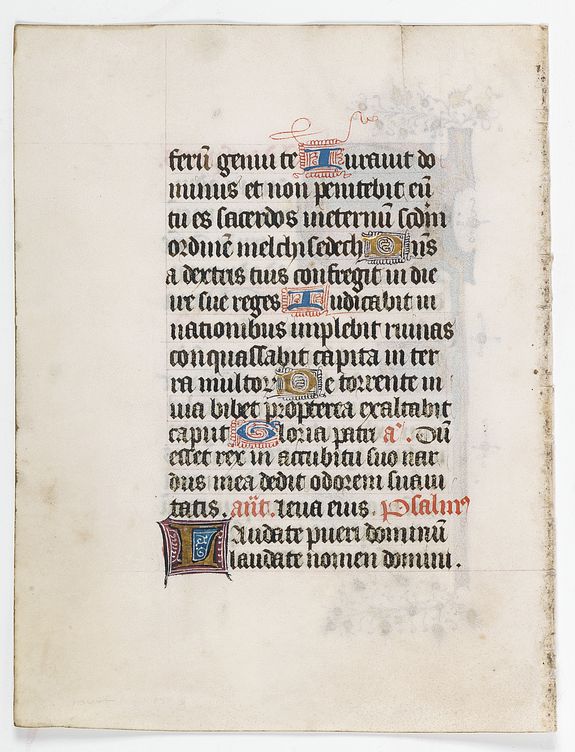 ferū genui te Iurauit do
minus et non penitebit eū
tu es sacerdos ineternū scdm̄
ordinē melchisedech Dn̄s
a dextris tuis confregit in die
ire sue reges Iudicabit in
nationibus implebit ruinas
conquassabit capita in ter
ra multoꝝ De torrente in
uia bibet propterea exaltabit
caput Gloria patri a᷑. Dū
esset rex in accubitu suo nar
dus mea dedit odorem suaui
tatis. an̄t. Leua eius. Psalmꝰ
Laudate pueri dominū
laudate nomen domini.